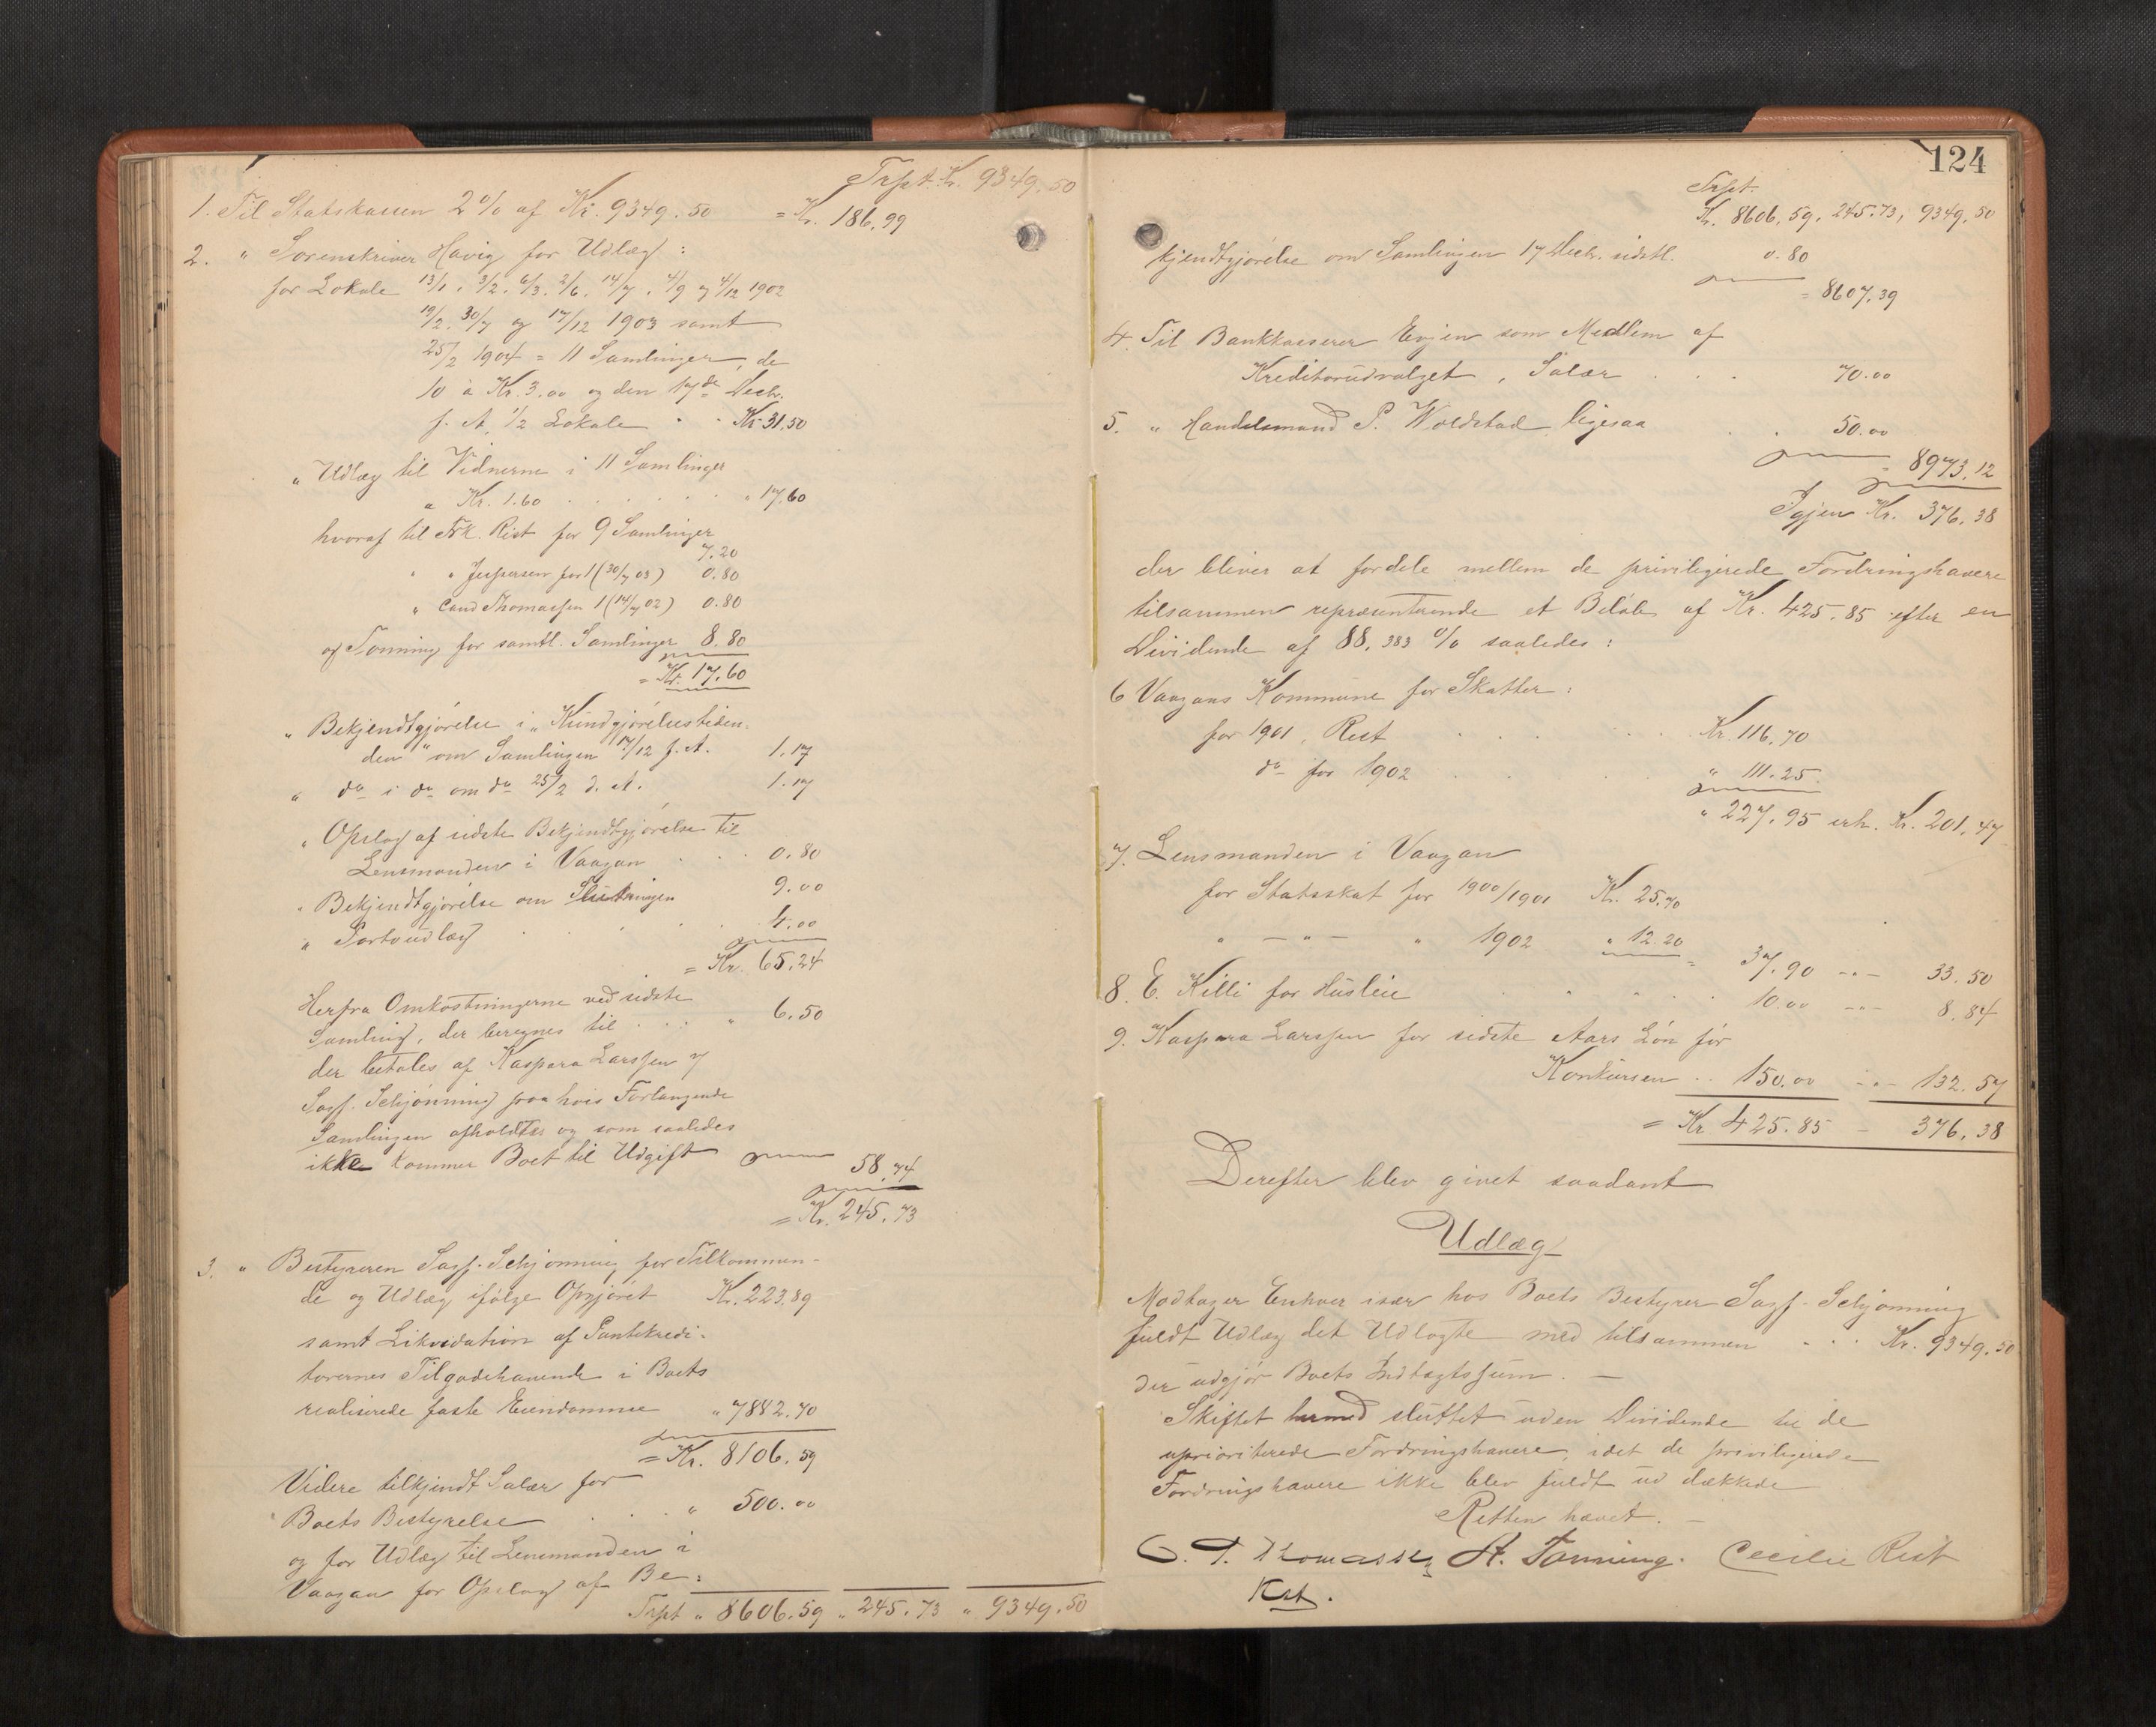 Trpt. Kr. 9349.50
1. Til Statskassen 2% af Kr. 9349.50 = Kr. 186.99
2. " Sorenskriver Havig for Udlæg:
for Lokale 13/1, 3/2, 6/3, 2/6, 14/7, 4/9 og 4/12 1902
19/2, 30/7 og 17/12 1903 samt
25/2 1904 = 11 Samlinger, de
10 à Kr. 3.00 og den 17de Decbr.
f. A. 1/2 Lokale . . Kr. 31.50
" Udlæg til Vidnerne i 11 Samlinger
a Kr. 1.60 . . . . . . " 17.60
hvoraf til Frk. Rist for 9 Samlinger
7.20
" " Jespersen for 1 (30/7 03) 0.80
" Cand Thomassen 1 (14/7 02) 0.80
og Tønning for samtl. Samlinger 8.80
= Kr. 17.60
" Bekjendtgjørelse i "Kundgjørelsestiden-
den" om Samlingen 17/12 f. A. 1.17
" do i do om do 25/2 d. A. 1.17
" Opslag af sidste Bekjendtgjørelse til
Lensmanden i Vaagan . . . 0.80
" Bekjendtgjørelse om Slutningen 9.00
" Portoudlæg . . . . . 4.00
= Kr. 65.24
Herfra Omkostningerne ved sidste
Samling, der beregnes til . . . " 6.50
der betales af Kaspara Larssen og
Sagf. Schjønning paa hvis Forlangende
Samlingen afholdtes og som saaledes
ikke kommer Boet til Udgift
58.74
= Kr. 245.73
3. " Bestyreren Sagf. Schjønning for Tilkommen-
de og Udlæg ifølge Opgjøret Kr. 223.89
samt Likvidation af Pantekredi-
torernes Tilgodehavende i Boets
realiserede faste Eiendomme " 7882.70
= Kr. 8106.59
Videre tilkjendt Salær for
Boets Bestyrelse . . . " 500.00
og for Udlæg til Lensmanden i
Vaagan for Opslag af Be:
Trpt " 8606.59 " 245.73 " 9349.50
124
Trpt.
Kr. 8606.59, 245.73, 9349.50
kjendtgjørelse om Samlingen 17 Decbr. sidstl. 0.80
= 8607.39
4. Til Bankkasserer Evjen som Medlem af
Kreditorudvalget, Salær . . . 70.00
5. " Handelsmand P. Woldstad ligesaa . . 50.00
" 8973.12
Igjen Kr. 376.38
der bliver at fordele mellem de priviligerede Fordringshavere
tilsammen repræsenterende et Beløb af Kr. 425.85 efter en
Dividende af 88.383 % saaledes:
6 Vaagans Kommune for Skatter:
for 1901, Rest . . . . . Kr. 116.70
do for 1902 . . . " 111.25
" 227.95 erh. Kr. 201.47
7. Lensmanden i Vaagan
for Statsskat for 1900/1901 Kr. 25.70
" - " - " 1902 " 12.20
= 37.90 -"- 33.50
8. E. Killi for Husleie . . . . 10.00 -"- 8.84
9. Kaspara Larssen for sidste Aars Løn før
Konkursen . . 150.00 -"- 132.57
= Kr 425.85 - 376.38
Derefter blev givet saadant
Udlæg
Modtager Enhver især hos Boets Bestyrer Sagf. Schjønning
fuldt Udlæg det Udlagte med tilsammen . . . Kr. 9349.50
der udgjør Boets Indtægtssum. —
Skiftet hermed sluttet uden Dividende til de
uprioriterede Fordringshavere, idet de priviligerede
Fordringshavere ikke blev fuldt ud dækkede
Retten hævet. —
C. T. Thomassen A. Tønning. Cecilie Rist
Kst.